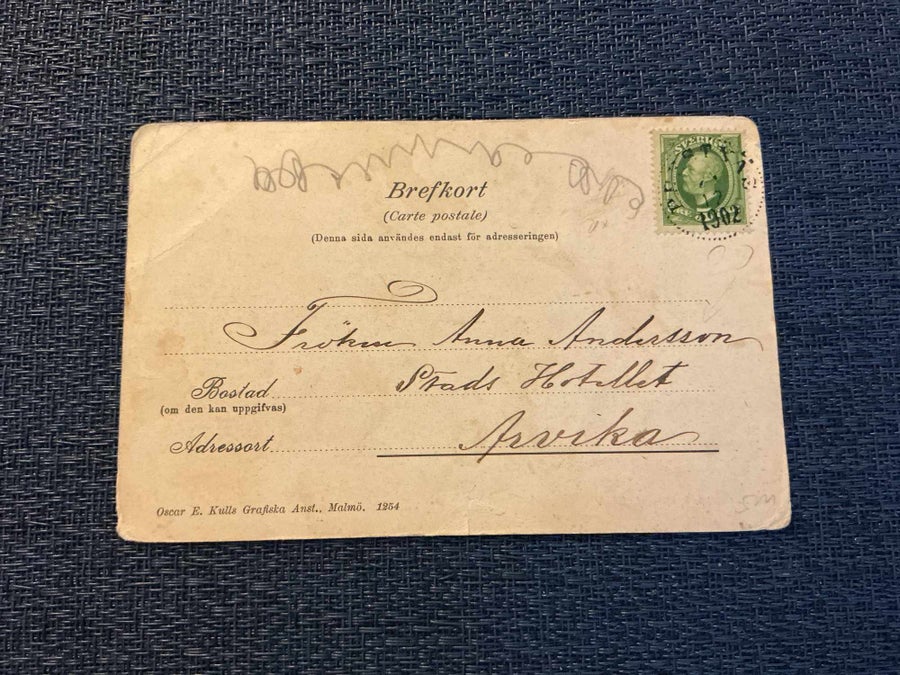 SVERIGE
1902
Brefkort
(Carte postale)
(Denna sida användes endast för adresseringen)
Fröken Anna Andersson
Bostad Stads Hotellet
(om den kan uppgifvas)
Adressort Arvika
Oscar E. Kulls Grafiska Anst., Malmö. 1254